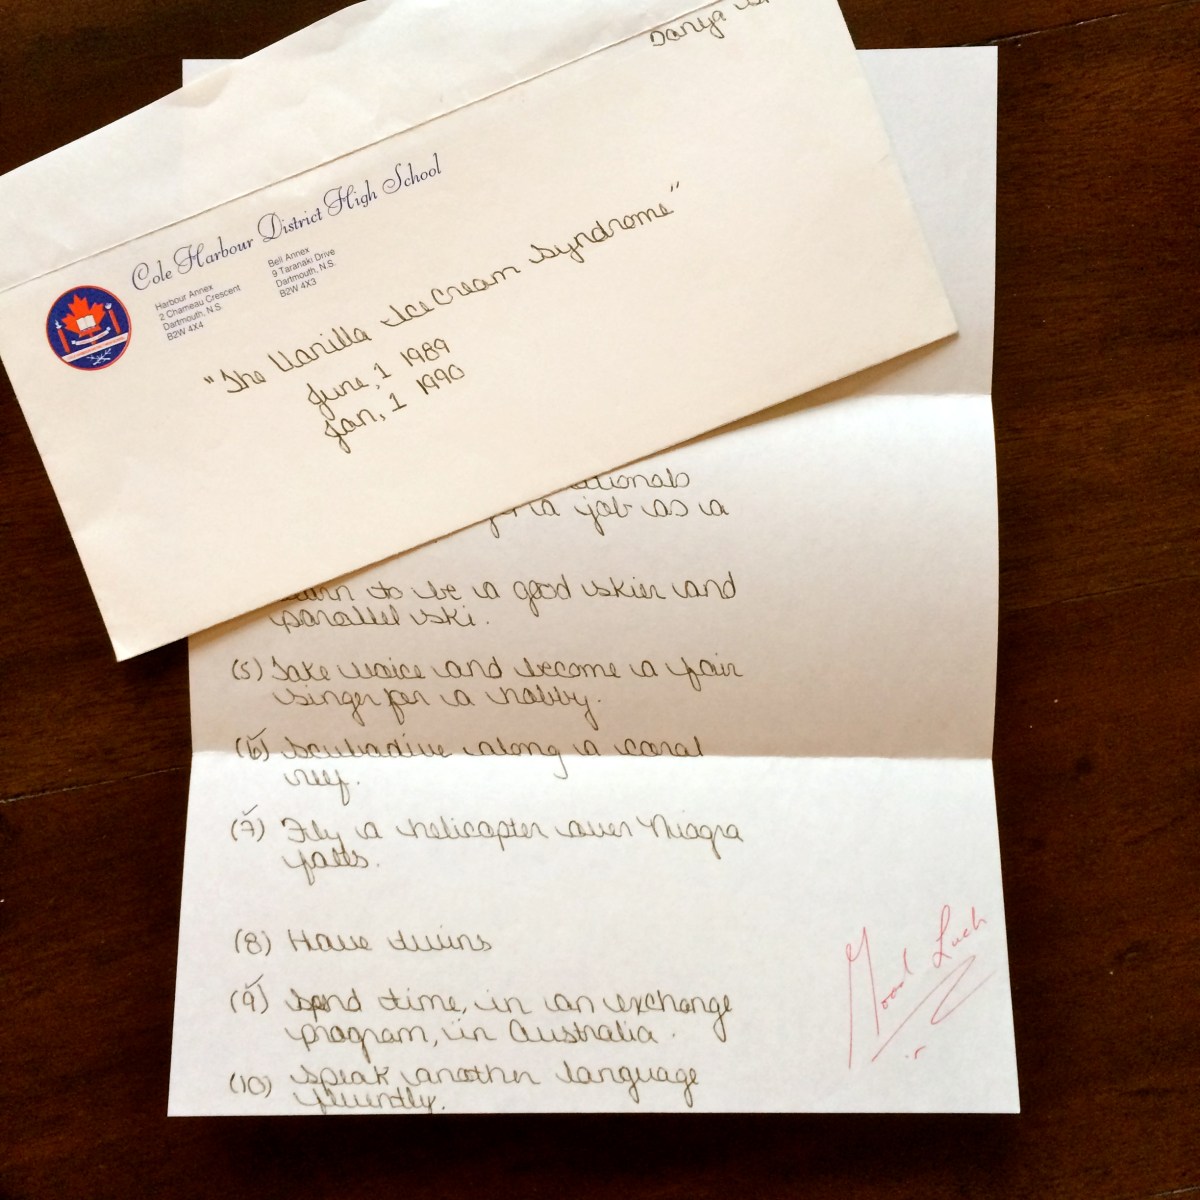 Danya
Cole Harbour District High School
Harbour Annex
2 Chameau Crescent
Dartmouth, N.S.
B2W 4X4
Bell Annex
9 Taranaki Drive
Dartmouth, N.S.
B2W 4X3
"The Vanilla Ice Cream Syndrome"
June, 1 1989
Jan, 1 1990
a job as a
to be a good skier and
parallel ski.
(5) Take voice and become a fair
singer for a hobby.
(6) Scubadive along a coral
reef.
(7) Fily a helicopter over Niagra
falls.
(8) Have twins
(9) spend time, in an exchange
program, in Australia.
(10) speak another language
fluently.
Good Luck